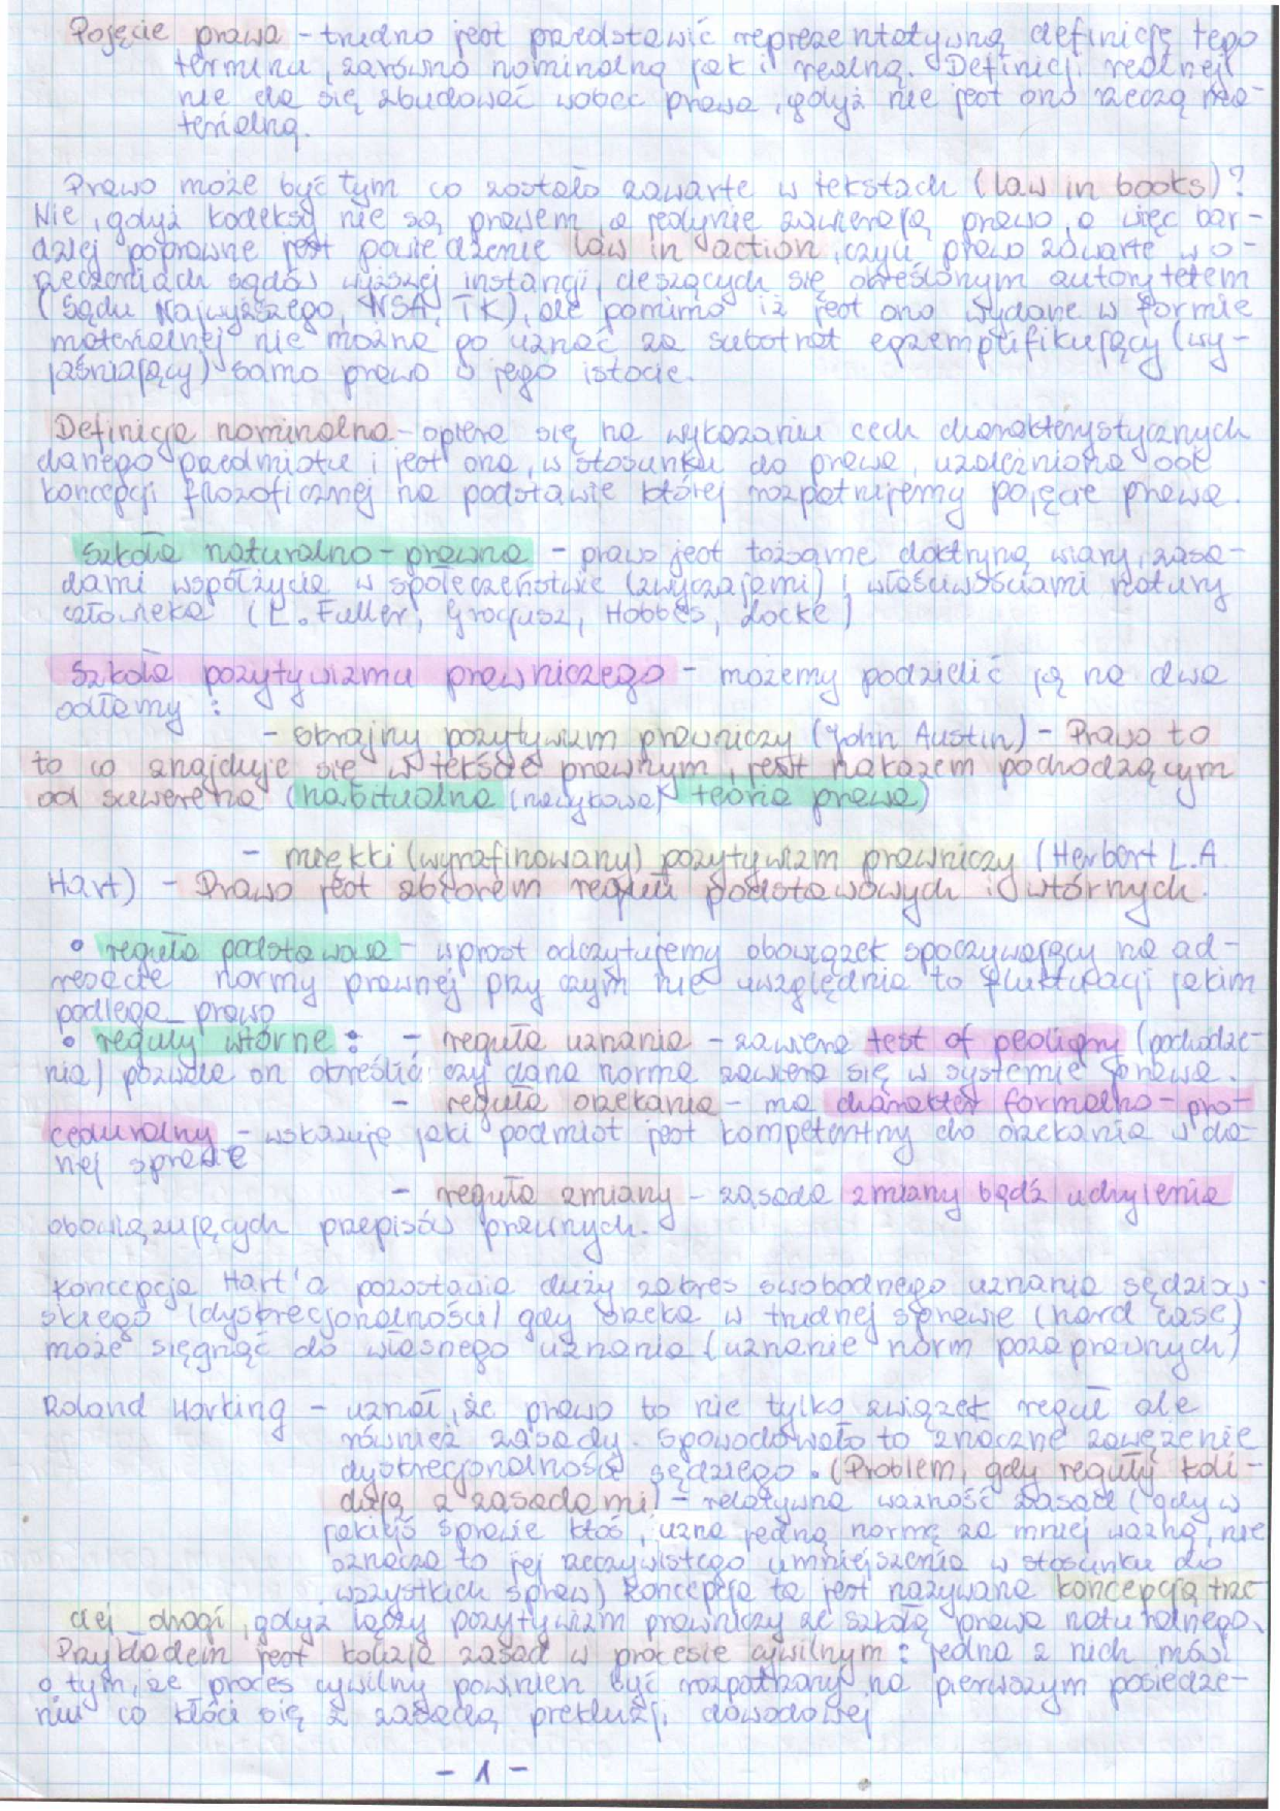 Pojęcie prawa - trudno jest przedstawić reprezentatywną definicję tego
terminu, zarówno nominalną jak i realną. Definicji realnej
nie da się zbudować wobec prawa, gdyż nie jest ono rzeczą ma-
terialną.
Prawo może być tym co zostało zawarte w tekstach (law in books)?
Nie, gdyż kodeksy nie są prawem a jedynie zawierają prawo, a więc bar-
dziej poprawne jest powiedzenie law in action, czyli prawo zawarte w o-
rzeczeniach sądów wyższej instancji, cieszących się określonym autorytetem
(Sądu Najwyższego, NSA, TK), ale pomimo iż jest ono wydane w formie
materialnej nie można go uznać za substrat egzemplifikujący (wy-
jaśniający) samo prawo w jego istocie.
Definicja nominalna - opiera się na wykazaniu cech charakterystycznych
danego przedmiotu i jest ona, w stosunku do prawa, uzależniona od
koncepcji filozoficznej na podstawie której rozpatrujemy pojęcie prawa.
Szkoła naturalno-prawna - prawo jest tożsame doktryną wiary, zasa-
dami współżycia w społeczeństwie (zwyczajami) i właściwościami natury
człowieka (L. Fuller, Grocjusz, Hobbes, Locke)
Szkoła pozytywizmu prawniczego - możemy podzielić ją na dwa
odłamy :
- skrajny pozytywizm prawniczy (John Austin) - Prawo to
to co znajduje się w tekście prawnym, jest nakazem pochodzącym
od suwerena (habitualna (nawykowa) teoria prawa)
- miękki (wyrafinowany) pozytywizm prawniczy (Herbert L.A.
Hart) - Prawo jest zbiorem reguł podstawowych i wtórnych.
• reguła podstawowa - wprost odczytujemy obowiązek spoczywający na ad-
resacie normy prawnej przy czym nie uwzględnia to fluktuacji jakim
podlega prawo
• reguły wtórne : - reguła uznania - zawiera test of pedigry (pochodze-
nia) pozwala on określić czy dana norma zawiera się w systemie prawa.
- reguła orzekania - ma charakter formalno-pro-
ceduralny - wskazuje jaki podmiot jest kompetentny do orzekania w da-
nej sprawie
- reguła zmiany - zasada zmiany bądź uchylenia
obowiązujących przepisów prawnych.
Koncepcja Hart'a pozostawia duży zakres swobodnego uznania sędziow-
skiego (dyskrecjonalności) gdy orzeka w trudnej sprawie (hard case)
może sięgnąć do własnego uznania (uznanie norm pozaprawnych)
Roland Working - uznał, że prawo to nie tylko związek reguł ale
również zasady. Spowodowało to znaczne zawężenie
dyskrecjonalności sędziego. (Problem, gdy reguły koli-
dują z zasadami) - relatywna ważność zasad (gdy w
jakiejś sprawie ktoś, uzna jedną normę za mniej ważną, nie
oznacza to jej rzeczywistego umniejszenia w stosunku do
wszystkich spraw) Koncepcja ta jest nazywana koncepcją trze-
ciej drogi, gdyż łączy pozytywizm prawniczy ze szkołą prawa naturalnego.
Przykładem jest kolizja zasad w procesie cywilnym : jedna z nich mówi
o tym, że proces cywilny powinien być rozpatrzany na pierwszym posiedze-
niu co kłóci się z zasadą prekluzji dowodowej
- 1 -